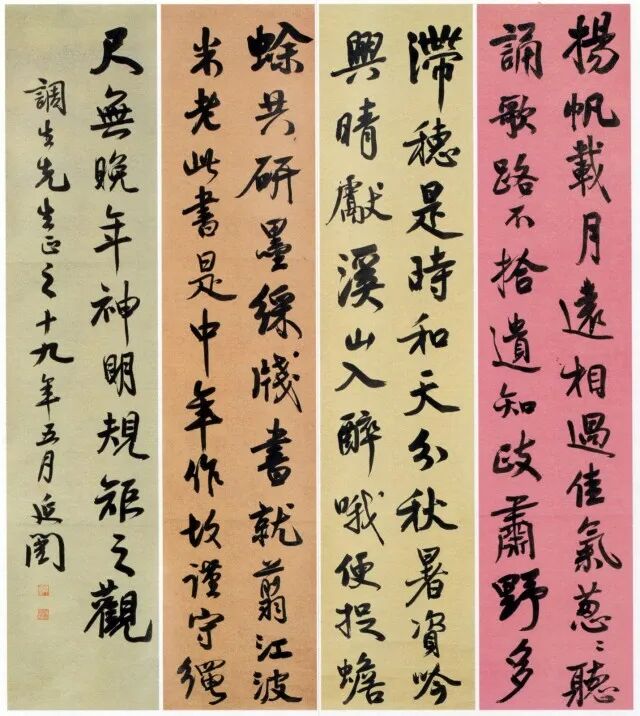 揚帆載月遠相過佳氣蔥〻聽
誦歌路不拾遺知政肅野多
滯穗是時和天分秋暑資吟
興晴獻溪山入醉哦便捉蟾
蜍共研墨綵牋書就翦江波
米老此書是中年作故謹守繩
尺無晚年神明規矩之觀
調生先生正之十九年五月延闓